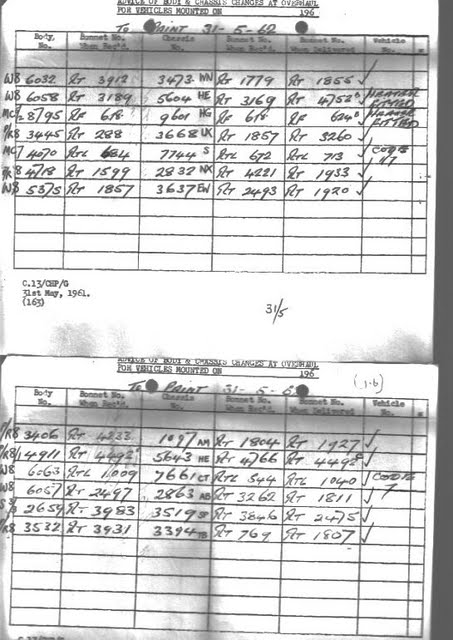 ADVICE OF BODY & CHASSIS CHANGES AT OVERHAUL
FOR VEHICLES MOUNTED ON 196
TO PRINT 31-5-62
Body No. Bonnet No. When Rec'd. Chassis No. Bonnet No. When Rec'd. Bonnet No. When Delivered Vehicle No.
W8 6032 RT 3912 3473 WN RT 1779 RT 1856 ✓
W8 6058 RT 3189 5604 HE RT 3169 RT 4752 ✓ HEATER FITTED
8795 RF 618 9601 HG RF 618 RF 624 ✓ HEATER FITTED
3445 RT 288 3668 UX RT 1857 RT 3260 ✓
4070 RTL 684 7744 S RTL 672 RTL 713 ✓
8 4718 RT 1599 2832 NX RT 4221 RT 1933 ✓
W8 5375 RT 1857 3637 EW RT 2493 RT 1920 ✓
C.13/CHP/G
31st May, 1961.
(163)
31/5
ADVICE OF BODY & CHASSIS CHANGES AT OVERHAUL
FOR VEHICLES MOUNTED ON 196
TO PRINT 31-5-6
Body No. Bonnet No. When Rec'd. Chassis No. Bonnet No. When Rec'd. Bonnet No. When Delivered Vehicle No.
3406 RT 4233 1097 AM RT 1804 RT 1727 ✓
4911 RT 4492 5643 HE RT 4766 RT 4492 ✓
W8 6063 RTL 1009 7661 CT RTL 544 RTL 1040 ✓
W8 6067 RT 2497 2863 AB RT 3262 RT 1811 ✓
2659 RT 3983 3519 SP RT 3846 RT 2475 ✓
3532 RT 3931 3394 TB RT 769 RT 1807 ✓